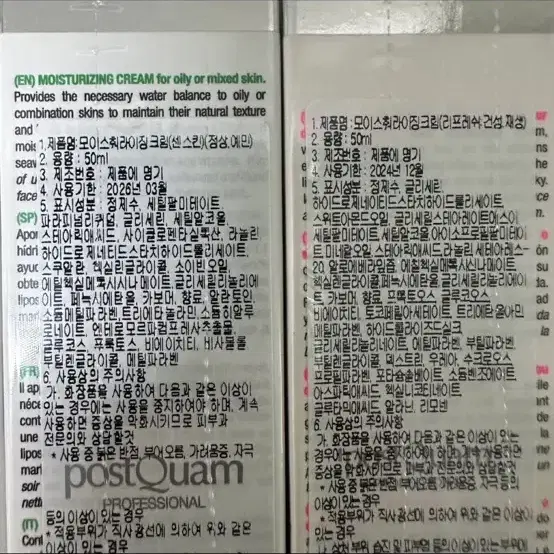 (EN) MOISTURIZING CREAM for oily or mixed skin.
Provides the necessary water balance to oily or
combination skins to maintain their natural texture
and
1.제품명:모이스춰라이징크림(센스킨)(정상,예민)
2. 용량 : 50ml
3. 제조번호 : 제품에 명기
4. 사용기한 : 2026년 03월
5. 표시성분 : 정제수, 세틸팔미테이트,
글리세린, 세틸알코올,
스테아릭애씨드, 사이클로펜타실록산, 라놀린
하이드로제네티드스타치하이드롤리세이트,
스쿠알란, 헥실린글라이콜, 소이빈오일,
에틸헥실메톡시신나메이트, 글리세릴리놀리에
이트, 페녹시에탄올, 카보머, 향료, 알란토인,
소듐메틸파라벤, 트리에탄올아민, 소듐하이알
루로네이트,
글루코스, 프룩토스, 비에이치티, 비사볼올
부틸렌글라이콜, 메틸파라벤
6. 사용상의 주의사항
가. 화장품을 사용하여 다음과 같은 이상이
있는 경우에는 사용을 중지하여야 하며, 계속
사용하면 증상을 악화시키므로 피부과
전문의와 상담할것
* 사용 중 붉은 반점, 부어오름, 가려움증, 자극
postQuam
PROFESSIONAL
등의 이상이 있는 경우
* 적용부위가 직사광선에 의하여 위와 같은
이상이 있는 경우
(SP)
(FR)
(IT)
1.제품명:모이스춰라이징크림(리프레쉬,건성,재생)
2. 용량 : 50ml
3. 제조번호 : 제품에 명기
4. 사용기한 : 2024년 12월
5. 표시성분 : 정제수, 글리세린,
하이드로제네티드스타치하이드롤리세이트,
스위트아몬드오일, 글리세릴스테아레이트에스이
세틸팔미테이트, 세틸알코올, 아이소프로필팔미테이
트, 미네랄오일, 스테아릭애씨드, 라놀린, 세테아레스-
20, 알로에베라잎즙, 에칠헥실메톡시신나메이트,
헥실렌글라이콜, 페녹시에탄올, 글리세릴리놀리에이
트, 카보머, 향료, 프룩토오스, 글루코오스,
비에이치티, 토코페릴아세테이트, 트리에탄올아민
메틸파라벤, 하이드롤라이즈드실크
글리세릴리놀리네이트, 에틸파라벤, 부틸파라벤
부틸렌글라이콜, 덱스트린, 우레아, 수크로오스
프로필파라벤, 포타슘솔베이트, 소듐벤조에이트,
아스파틱애씨드, 헥실니코티네이트,
글루타믹애씨드, 알라닌, 리모넨
6. 사용상의 주의사항
가. 화장품을 사용하여 다음과 같은 이상이 있는
경우에는 사용을 중지하여야 하며, 계속 사용하면
증상을 악화시키므로 피부과 전문의와 상담할것
* 사용 중 붉은 반점, 부어오름, 가려움증, 자극 등의 이
상이 있는 경우
* 적용부위가 직사광선에 의하여 위와 같은
이상이 있는 경우